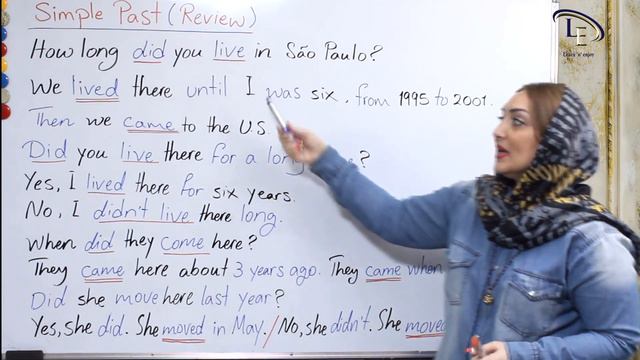 Simple Past (Review)
How long did you live in São Paulo?
We lived there until I was six, from 1995 to 2001.
Then we came to the U.S.
Did you live there for a long ?
Yes, I lived there for six years.
No, I didn't live there long.
When did they come here?
They came here about 3 years ago. They came when
Did she move here last year?
Yes, she did. She moved in May. / No, she didn't. She moved
LE
Learn 'n' enjoy